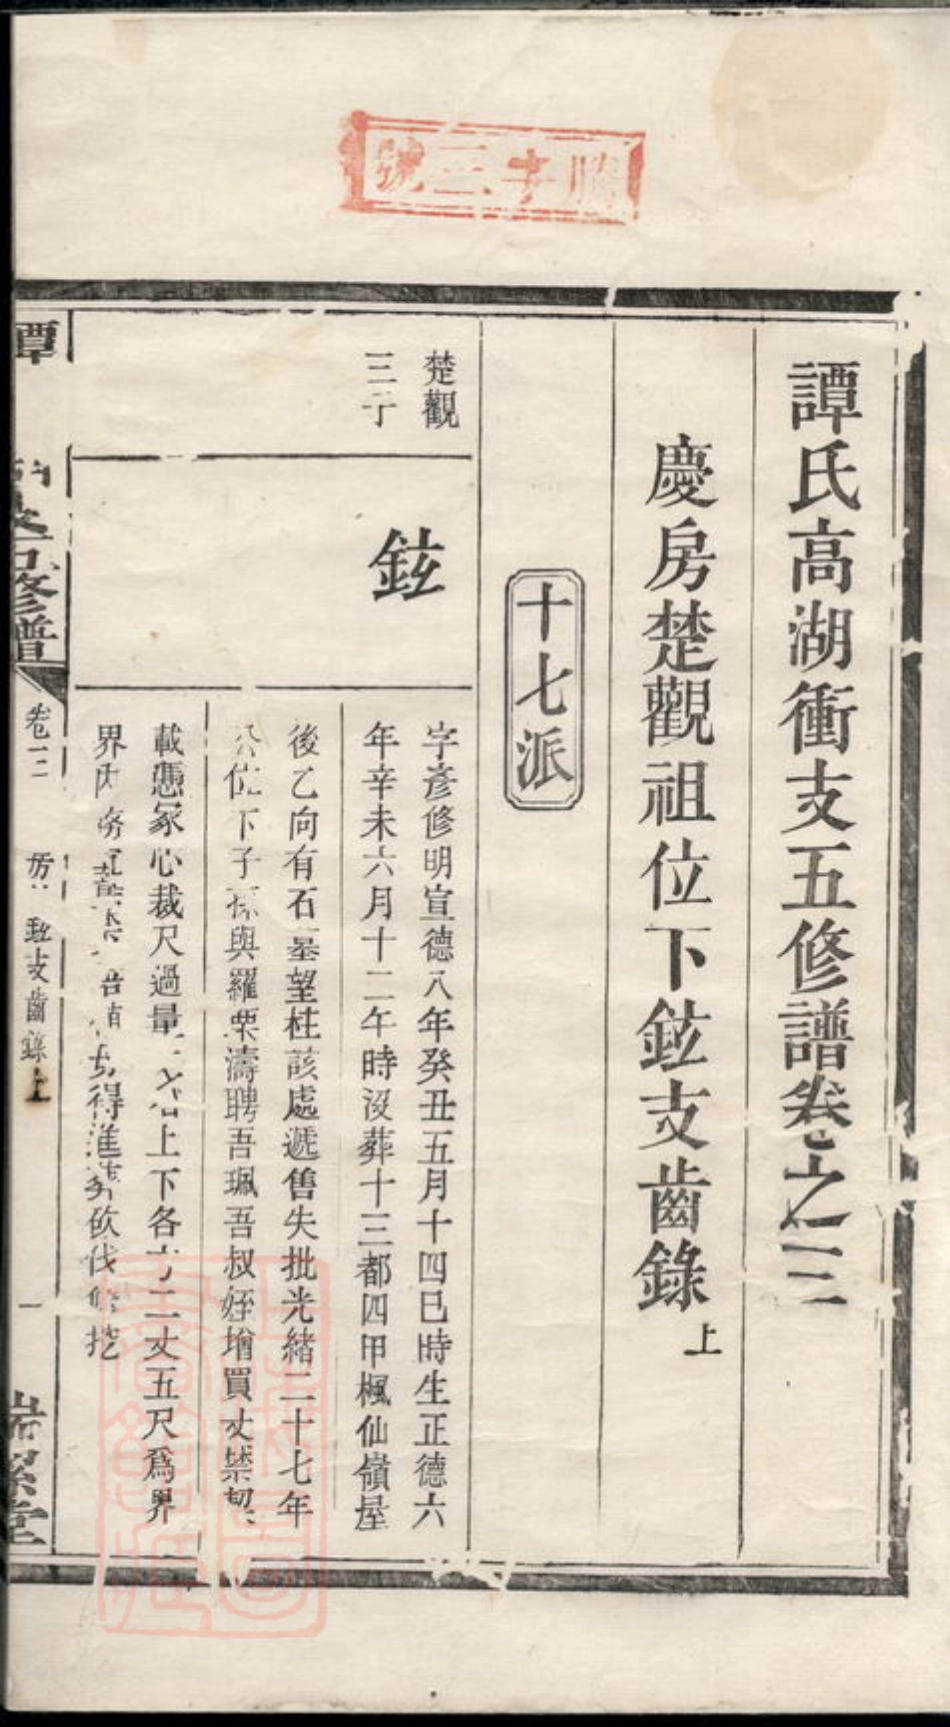 三號
譚氏高湖衝支五修譜卷之三
慶房楚觀祖位下鉉支齒錄上
十七派
楚觀
三子
鉉
字彥修明宣德八年癸丑五月十四巳時生正德六
年辛未六月十二午時沒葬十三都四甲楓仙嶺屋
後乙向有石墓望柱該處遞售失批光緒二十七年
公位下子孫與羅栗濤聘吾珮吾叔姪增買丈禁切
載憑冢心裁尺過量上下各二丈五尺爲界
界內得進葬砍伐挖
譚
五修譜
卷三
房
鉉支齒錄上
一
堂